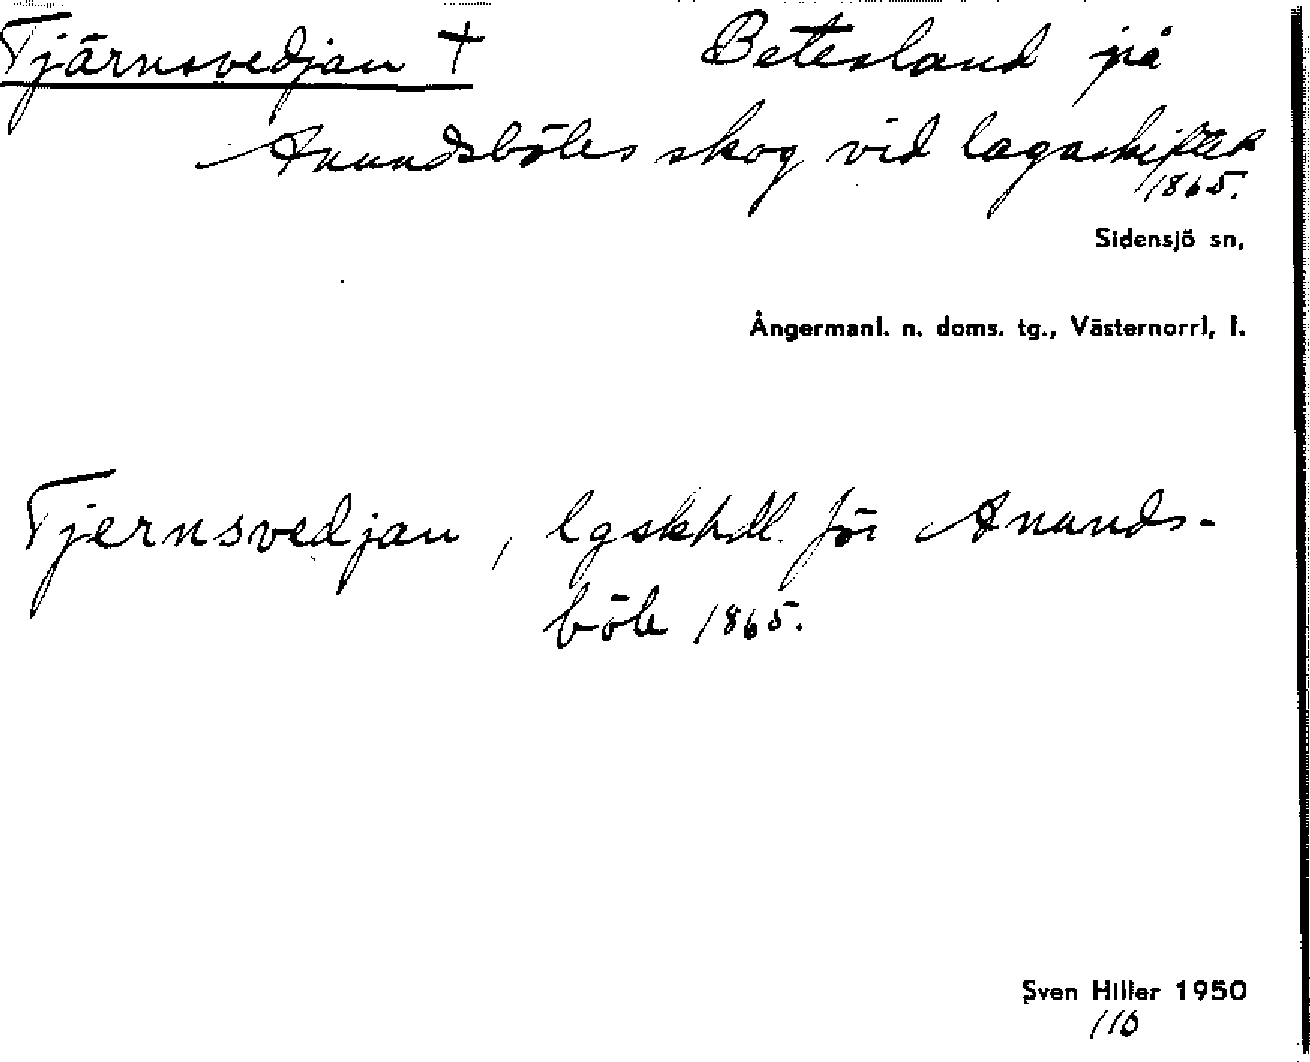 Tjärnsvedjan † Betesland på
Anundsböles skog vid lagaskiftet
1865.
Sidensjö sn,
Ångermanl. n. doms. tg., Västernorrl, l.
Tjernsvedjan, lgskhdl. för Anunds-
böle 1865.
Sven Hiller 1950
116